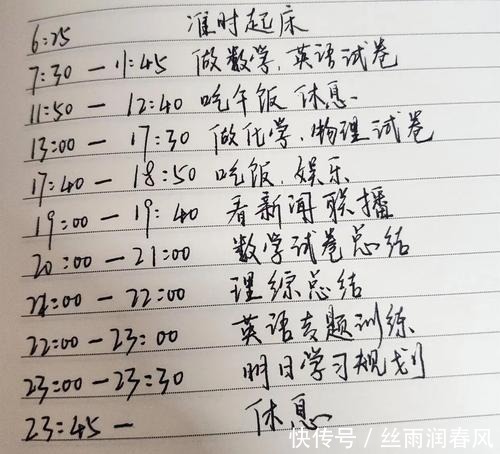 6:25 准时起床
7:30 — 11:45 做数学、英语试卷
11:50 — 12:40 吃午饭 休息.
13:00 — 17:30 做化学、物理试卷
17:40 — 18:50 吃饭、娱乐
19:00 — 19:40 看新闻联播
20:00 — 21:00 数学试卷总结
21:00 — 22:00 理综总结
22:00 — 23:00 英语专题训练
23:00 — 23:30 明日学习规划
23:45 — 休息
快传号/丝雨润春风